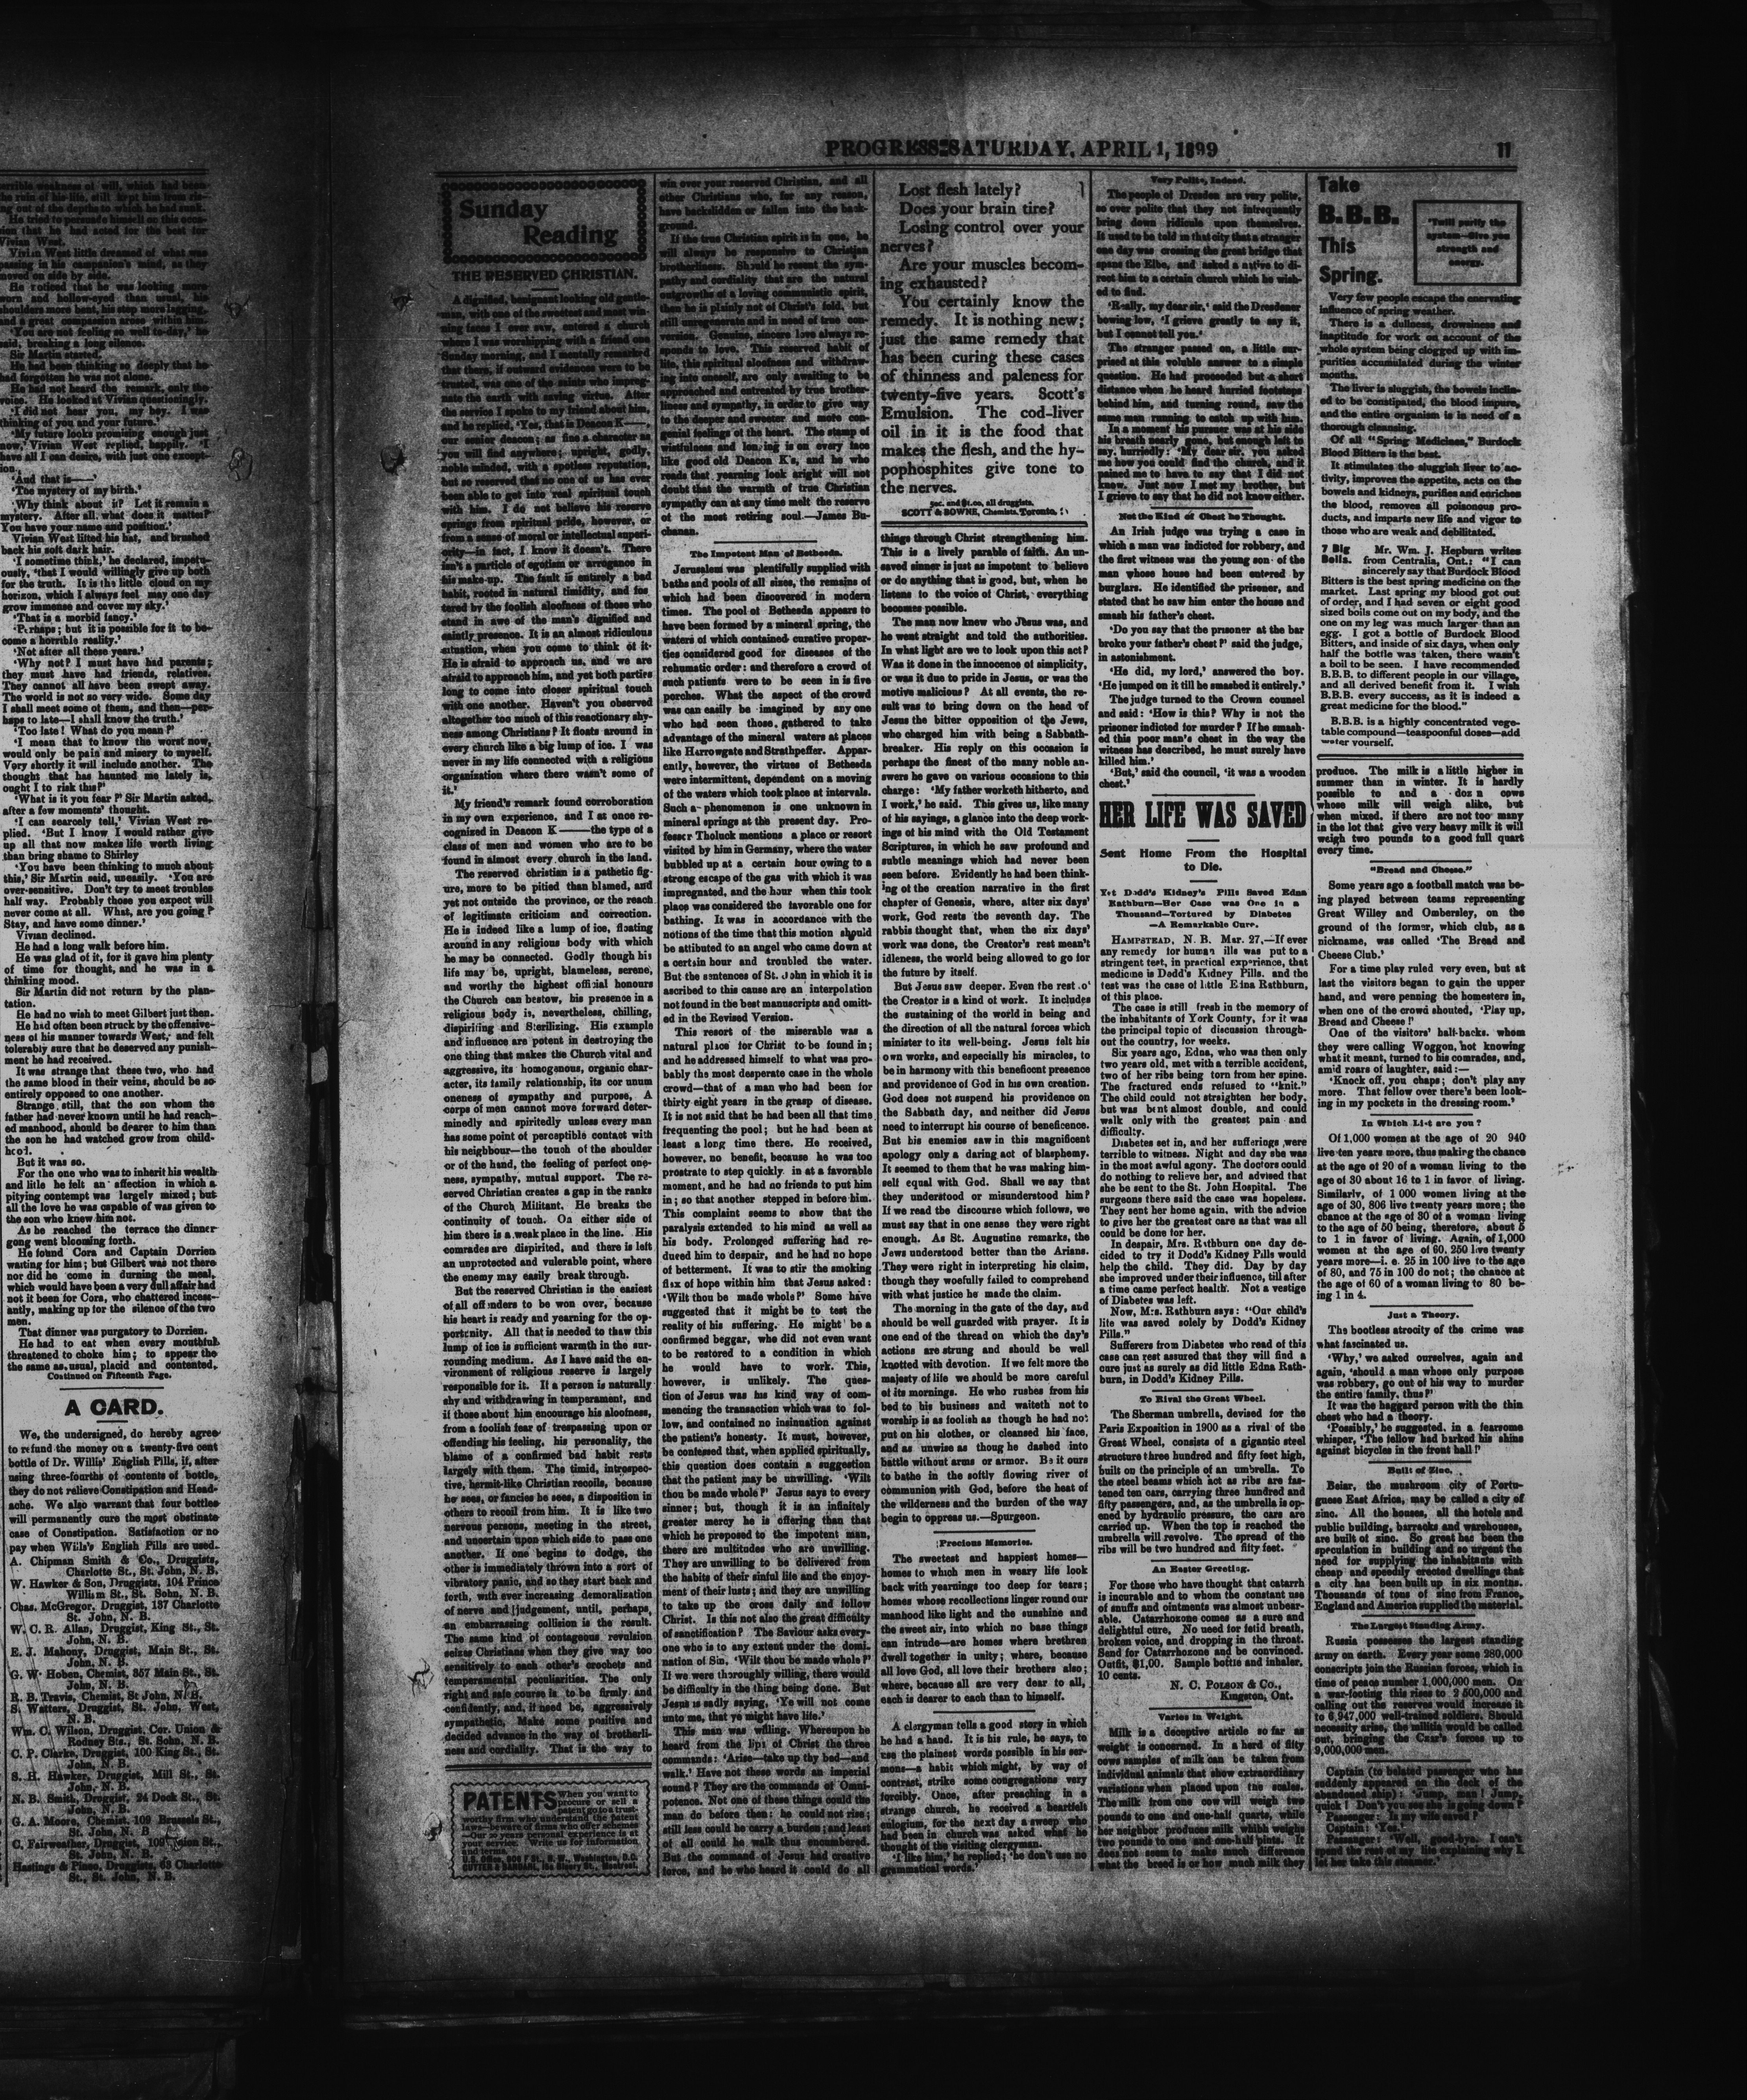 errible weakness of will, which had been
he ruin of his life, still kept him from ris-
ng out of the depths to which he had sunk.
He tried to persuade himself on this occa-
sion that he had acted for the best for
Vivian West.
Vivian West little dreamed of what was
passing in his companion's mind, as they
moved on side by side.
He noticed that he was looking more
worn and hollow-eyed than usual, his
shoulders more bent, his step more lagging,
and a great compassion arose within him.
'You are not feeling so well to-day,' he
said, breaking a long silence.
Sir Martin started.
He had been thinking so deeply that he
had forgotten he was not alone.
He had not heard the remark, only the
voice. He looked at Vivian questioningly.
'I did not hear you, my boy. I was
thinking of you and your future.'
'My future looks promising enough just
now,' Vivian West replied, happily. 'I
have all I can desire, with just one except-
ion.'
'And that is——'
'The mystery of my birth.'
'Why think about it? Let it remain a
mystery. After all, what does it matter?
You have your name and position.'
Vivian West lifted his hat, and brushed
back his soft dark hair.
'I sometime think,' he declared, impetu-
ously, 'that I would willingly give up both
for the truth. It is the little cloud on my
horizon, which I always feel may one day
grow immense and cover my sky.'
'That is a morbid fancy.'
'Perhaps; but it is possible for it to be-
come a horrible reality.'
'Not after all these years.'
'Why not? I must have had parents;
they must have had friends, relatives.
They cannot all have been swept away.
The world is not so very wide. Some day
I shall meet some of them, and then—per-
haps to late—I shall know the truth.'
'Too late! What do you mean?'
'I mean that to know the worst now,
would only be pain and misery to myself.
Very shortly it will include another. The
thought that has haunted me lately is,
ought I to risk this?'
'What is it you fear?' Sir Martin asked,
after a few moments' thought.
'I can scarcely tell,' Vivian West re-
plied. 'But I know I would rather give
up all that now makes life worth living
than bring shame to Shirley
'You have been thinking to much about
this,' Sir Martin said, uneasily. 'You are
over-sensitive. Don't try to meet troubles
half way. Probably those you expect will
never come at all. What, are you going?
Stay, and have some dinner.'
Vivian declined.
He had a long walk before him.
He was glad of it, for it gave him plenty
of time for thought, and he was in a
thinking mood.
Sir Martin did not return by the plan-
tation.
He had no wish to meet Gilbert just then.
He had often been struck by the offensive-
ness of his manner towards West, and felt
tolerably sure that he deserved any punish-
ment he had received.
It was strange that these two, who had
the same blood in their veins, should be so
entirely opposed to one another.
Strange still, that the son whom the
father had never known until he had reach-
ed manhood, should be dearer to him than
the son he had watched grow from child-
hood.
But it was so.
For the one who was to inherit his wealth
and title he felt an affection in which a
pitying contempt was largely mixed; but
all the love he was capable of was given to
the son who knew him not.
As he reached the terrace the dinner
gong went blooming forth.
He found Cora and Captain Dorrien
waiting for him; but Gilbert was not there
nor did he come in durning the meal,
which would have been a very dull affair had
not it been for Cora, who chattered incess-
antly, making up for the silence of the two
men.
That dinner was purgatory to Dorrien.
He had to eat when every mouthful
threatened to choke him; to appear the
the same as, usual, placid and contented,
Continued on Fifteenth Page.
A CARD.
We, the undersigned, do hereby agree
to refund the money on a twenty-five cent
bottle of Dr. Willis' English Pills, if, after
using three-fourths of contents of bottle,
they do not relieve Constipation and Head-
ache. We also warrant that four bottles
will permanently cure the most obstinate
case of Constipation. Satisfaction or no
pay when Willis's English Pills are used.
A. Chipman Smith & Co., Druggists,
Charlotte St., St. John, N. B.
W. Hawker & Son, Druggists, 104 Prince
William St., St. John, N. B.
Chas. McGregor, Druggist, 137 Charlotte
St. John, N. B.
W. C. R. Allan, Druggist, King St., St.
John, N. B.
E. J. Mahony, Druggist, Main St., St.
John, N. B.
G. W. Hoben, Chemist, 357 Main St., St.
John, N. B.
R. B. Travis, Chemist, St John, N. B.
S. Watters, Druggist, St. John, West,
N. B.
Wm. C. Wilson, Druggist, Cor. Union &
Rodney Sts., St. John, N. B.
C. P. Clarke, Druggist, 100 King St., St.
John, N. B.
S. H. Hawker, Druggist, Mill St., St.
John, N. B.
N. B. Smith, Druggist, 24 Dock St., St.
John, N. B.
G. A. Moore, Chemist, 109 Brussels St.,
St. John, N. B.
C. Fairweather, Druggist, 109 Union St.,
St. John, N. B.
Hastings & Pineo, Druggists, 63 Charlotte
St., St. John, N. B.
PROGRESS, SATURDAY, APRIL 1, 1899
11
Sunday
Reading
THE RESERVED CHRISTIAN.
A dignified, benignant looking old gentle-
man, with one of the sweetest and most win-
ning faces I ever saw, entered a church
where I was worshipping with a friend one
Sunday morning, and I mentally remarked
that them, if outward evidences were to be
trusted, was one of the saints who impreg-
nate the earth with saving virtue. After
the service I spoke to my friend about him,
and he replied, 'Yes, that is Deacon K——,
our senior deacon; as fine a character as
you will find anywhere; upright, godly,
noble minded, with a spotless reputation,
but so reserved that no one of us has ever
been able to get into real spiritual touch
with him. I do not believe his reserve
springs from spiritual pride, however, or
from a sense of moral or intellectual superi-
ority—in fact, I know it doesn't. There
isn't a particle of egotism or arrogance in
his make-up. The fault is entirely a bad
habit, rooted in natural timidity, and fos
tered by the foolish aloofness of those who
stand in awe of the man's dignified and
saintly presence. It is an almost ridiculous
situation, when you come to think of it.
He is afraid to approach us, and we are
afraid to approach him, and yet both parties
long to come into closer spiritual touch
with one another. Haven't you observed
altogether too much of this reactionary shy-
ness among Christians? It floats around in
every church like a big lump of ice. I was
never in my life connected with a religious
organization where there wasn't some of
it.'
My friend's remark found corroboration
in my own experience, and I at once re-
cognized in Deacon K——the type of a
class of men and women who are to be
found in almost every church in the land.
The reserved christian is a pathetic fig-
ure, more to be pitied than blamed, and
yet not outside the province, or the reach
of legitimate criticism and correction.
He is indeed like a lump of ice, floating
around in any religious body with which
he may be connected. Godly though his
life may be, upright, blameless, serene,
and worthy the highest official honours
the Church can bestow, his presence in a
religious body is, nevertheless, chilling,
dispiriting and Sterilizing. His example
and influence are potent in destroying the
one thing that makes the Church vital and
aggressive, its homogenous, organic char-
acter, its family relationship, its cor unum
oneness of sympathy and purpose, A
corps of men cannot move forward deter-
minedly and spiritedly unless every man
has some point of perceptible contact with
his neighbour—the touch of the shoulder
or of the hand, the feeling of perfect one-
ness, sympathy, mutual support. The re-
served Christian creates a gap in the ranks
of the Church Militant. He breaks the
continuity of touch. On either side of
him there is a weak place in the line. His
comrades are dispirited, and there is left
an unprotected and vulerable point, where
the enemy may easily break through.
But the reserved Christian is the easiest
of all offnders to be won over, because
his heart is ready and yearning for the op-
portunity. All that is needed to thaw this
lump of ice is sufficient warmth in the sur-
rounding medium. As I have said the en-
vironment of religious reserve is largely
responsible for it. If a person is naturally
shy and withdrawing in temperament, and
if those about him encourage his aloofness,
from a foolish fear of trespassing upon or
offending his feeling, his personality, the
blame of a confirmed bad habit rests
largely with them. The timid, introspec-
tive, hermit-like Christian recoils, because
he sees, or fancies he sees, a disposition in
others to recoil from him. It is like two
nervous persons, meeting in the street,
and uncertain upon which side to pass one
another. If one begins to dodge, the
other is immediately thrown into a sort of
vibratory panic, and so they start back and
forth, with ever increasing demoralization
of nerve and judgement, until, perhaps,
an embarrassing collision is the result.
The same kind of contageous revulsion
seizes Christians when they give way too
sensitively to each other's crochets and
temperamental peculiarities. The only
right and safe course is to be firmly and
confidently, and, if need be, aggressively
sympathetic. Make some positive and
decided advance in the way of brotherli-
ness and cordiality. That is the way to
PATENTS
When you want to
procure or sell a
patent go to a trust-
worthy firm who understand the patent
laws—beware of firms who offer schemes
—Our 50 years personal experience is at
your service. Write us for information
and terms.
U.S. Office, 606 F St., N. W., Washington, D.C.
win over your reserved Christian, and all
other Christians who, for any reason,
have backslidden or fallen into the back-
ground.
If the true Christian spirit is in one, he
will always be responsive to Christian
brotherliness. Should he resent the sym-
pathy and cordiality that are the natural
outgrowths of a loving communistic spirit,
then he is plainly not of Christ's fold, but
still unregenerate and in need of true con-
version. Genuine, sincere love always re-
sponds to love. This reserved habit of
life, this spiritual aloofness and withdraw-
ing into oneself, are only awaiting to be
approached and entreated by true brother-
liness and sympathy, in order to give way
to the deeper and sweeter and more con-
genial feelings of the heart. The stamp of
wistfulness and longing is on every face
like good old Deacon K's, and he who
reads that yearning look aright will not
doubt that the warmth of true Christian
sympathy can at any time melt the reserve
of the most retiring soul.—James Bu-
chanan.
The Impotent Man of Bethesda.
Jerusalem was plentifully supplied with
baths and pools of all sizes, the remains of
which had been discovered in modern
times. The pool of Bethesda appears to
have been formed by a mineral spring, the
waters of which contained curative proper-
ties considered good for diseases of the
rehumatic order: and therefore a crowd of
such patients were to be seen in is five
porches. What the aspect of the crowd
was can easily be imagined by any one
who had seen those, gathered to take
advantage of the mineral waters at places
like Harrowgate and Strathpeffer. Appar-
ently, however, the virtues of Bethesda
were intermittent, dependent on a moving
of the waters which took place at intervals.
Such a phenomenon is one unknown in
mineral springs at the present day. Pro-
fesser Tholuck mentions a place or resort
visited by him in Germany, where the water
bubbled up at a certain hour owing to a
strong escape of the gas with which it was
impregnated, and the hour when this took
place was considered the favorable one for
bathing. It was in accordance with the
notions of the time that this motion should
be attibuted to an angel who came down at
a certsin hour and troubled the water.
But the sentences of St. John in which it is
ascribed to this cause are an interpolation
not found in the best manuscripts and omitt-
ed in the Revised Version.
This resort of the miserable was a
natural place for Christ to be found in;
and he addressed himself to what was pro-
bably the most desperate case in the whole
crowd—that of a man who had been for
thirty eight years in the grasp of disease.
It is not said that he had been all that time
frequenting the pool; but he had been at
least a long time there. He received,
however, no benefit, because he was too
prostrate to step quickly in at a favorable
moment, and he had no friends to put him
in; so that another stepped in before him.
This complaint seems to show that the
paralysis extended to his mind as well as
his body. Prolonged suffering had re-
dured him to despair, and he had no hope
of betterment. It was to stir the smoking
flax of hope within him that Jesus asked:
'Wilt thou be made whole?' Some have
suggested that it might be to test the
reality of his suffering. He might be a
confirmed beggar, whe did not even want
to be restored to a condition in which
he would have to work. This,
however, is unlikely. The ques-
tion of Jesus was his kind way of com-
mencing the transaction which was to fol-
low, and contained no insinuation against
the patient's honesty. It must, however,
be confessed that, when applied spiritually,
this question does contain a suggestion
that the patient may be unwilling. 'Wilt
thou be made whole?' Jesus says to every
sinner; but, though it is an infinitely
greater mercy he is offering than that
which he proposed to the impotent man,
there are multitudes who are unwilling.
They are unwilling to be delivered from
the habits of their sinful life and the enjoy-
ment of their lusts; and they are unwilling
to take up the cross daily and follow
Christ. Is this not also the great difficulty
of sanctification? The Saviour asks every-
one who is to any extent under the domi-
nation of Sin, 'Wilt thou be made whole?'
If we were thoroughly willing, there would
be difficulty in the thing being done. But
Jesus is sadly saying, 'Ye will not come
unto me, that ye might have life.'
This man was willing. Whereupon he
heard from the lips of Christ the three
commands: 'Arise—take up thy bed—and
walk.' Have not these words an imperial
sound? They are the commands of Omni-
potence. Not one of these things could the
man do before then: he could not rise;
still less could he carry a burden; and least
of all could he walk thus encumbered.
But the command of Jesus had creative
force, and he who heard it could do all
Lost flesh lately?
Does your brain tire?
Losing control over your
nerves?
Are your muscles becom-
ing exhausted?
You certainly know the
remedy. It is nothing new;
just the same remedy that
has been curing these cases
of thinness and paleness for
twenty-five years. Scott's
Emulsion. The cod-liver
oil in it is the food that
makes the flesh, and the hy-
pophosphites give tone to
the nerves.
50c. and $1.00, all druggists.
SCOTT & BOWNE, Chemists, Toronto.
things through Christ strengthening him.
This is a lively parable of faith. An un-
saved sinner is just as impotent to believe
or do anything that is good, but, when he
listens to the voice of Christ, everything
becomes possible.
The man now knew who Jesus was, and
he went straight and told the authorities.
In what light are we to look upon this act?
Was it done in the innocence of simplicity,
or was it due to pride in Jesus, or was the
motive malicious? At all events, the re-
sult was to bring down on the head of
Jesus the bitter opposition of the Jews,
who charged him with being a Sabbath-
breaker. His reply on this occasion is
perhaps the finest of the many noble an-
swers he gave on various occasions to this
charge: 'My father worketh hitherto, and
I work,' he said. This gives us, like many
of his sayings, a glance into the deep work-
ings of his mind with the Old Testament
Scriptures, in which he saw profound and
subtle meanings which had never been
seen before. Evidently he had been think-
ing of the creation narrative in the first
chapter of Genesis, where, after six days'
work, God rests the seventh day. The
rabbis thought that, when the six days'
work was done, the Creator's rest mean't
idleness, the world being allowed to go for
the future by itself.
But Jesus saw deeper. Even the rest o'
the Creator is a kind of work. It includes
the sustaining of the world in being and
the direction of all the natural forces which
minister to its well-being. Jesus felt his
own works, and especially his miracles, to
be in harmony with this beneficent presence
and providence of God in his own creation.
God does not suspend his providence on
the Sabbath day, and neither did Jesus
need to interrupt his course of beneficence.
But his enemies saw in this magnificent
apology only a daring act of blasphemy.
It seemed to them that he was making him-
self equal with God. Shall we say that
they understood or misunderstood him?
If we read the discourse which follows, we
must say that in one sense they were right
enough. As St. Augustine remarks, the
Jews understood better than the Arians.
They were right in interpreting his claim,
though they woefully failed to comprehend
with what justice he made the claim.
The morning in the gate of the day, and
should be well guarded with prayer. It is
one end of the thread on which the day's
actions are strung and should be well
knotted with devotion. If we felt more the
majesty of life we should be more careful
of its mornings. He who rushes from his
bed to his business and waiteth not to
worship is as foolish as though he had not
put on his clothes, or cleansed his face,
and as unwise as thoug he dashed into
battle without arms or armor. Be it ours
to bathe in the softly flowing river of
communion with God, before the heat of
the wilderness and the burden of the way
begin to oppress us.—Spurgeon.
Precious Memories.
The sweetest and happiest homes—
homes to which men in weary life look
back with yearnings too deep for tears;
homes whose recollections linger round our
manhood like light and the sunshine and
the sweet air, into which no base things
can intrude—are homes where brethren
dwell together in unity; where, because
all love God, all love their brothers also;
where, because all are very dear to all,
each is dearer to each than to himself.
A clergyman tells a good story in which
he had a hand. It is his rule, he says, to
use the plainest words possible in his ser-
mons—a habit which might, by way of
contrast, strike some congregations very
forcibly. Once, after preaching in a
strange church, he received a heartfelt
eulogium, for the next day a sweep who
had been in church was asked what he
thought of the visiting clergyman.
'I like him,' he replied; 'he don't use no
grammatical words.'
Very Polite, Indeed.
The people of Dresden are very polite,
so over polite that they not infrequently
bring down ridicule upon themselves.
It used to be told in that city that a stranger
one day was crossing the great bridge that
spans the Elbe, and asked a native to di-
rect him to a certain church which he wish-
ed to find.
'Really, my dear sir,' said the Dresdener
bowing low, 'I grieve greatly to say it,
but I cannot tell you.'
The stranger passed on, a little sur-
prised at this voluble answer to a simple
question. He had proceeded but a short
distance when he heard hurried footsteps
behind him, and turning round, saw the
same man running to catch up with him.
In a moment his pursuer was at his side
his breath nearly gone, but enough left to
say, hurriedly: 'My dear sir, you asked
me how you could find the church, and it
pained me to have to say that I did not
know. Just now I met my brother, but
I grieve to say that he did not know either.
Not the Kind of Chest he Thought.
An Irish judge was trying a case in
which a man was indicted for robbery, and
the first witness was the young son of the
man whose house had been entered by
burglars. He identified the prisoner, and
stated that he saw him enter the house and
smash his father's chest.
'Do you say that the prisoner at the bar
broke your father's chest?' said the judge,
in astonishment.
'He did, my lord,' answered the boy.
'He jumped on it till he smashed it entirely.'
The judge turned to the Crown counsel
and said: 'How is this? Why is not the
prisoner indicted for murder? If he smash-
ed this poor man's chest in the way the
witness has described, he must surely have
killed him.'
'But,' said the council, 'it was a wooden
chest.'
HER LIFE WAS SAVED
Sent Home From the Hospital
to Die.
Yet Dodd's Kidney's Pills Saved Edna
Rathburn—Her Case was One in a
Thousand—Tortured by Diabetes
—A Remarkable Cure.
HAMPSTEAD, N. B. Mar. 27,—If ever
any remedy for human ills was put to a
stringent test, in practical experience, that
medicine is Dodd's Kidney Pills. and the
test was the case of little Edna Rathburn,
of this place.
The case is still fresh in the memory of
the inhabitants of York County, for it was
the principal topic of discussion through-
out the country, for weeks.
Six years ago, Edna, who was then only
two years old, met with a terrible accident,
two of her ribs being torn from her spine.
The fractured ends refused to "knit."
The child could not straighten her body,
but was bent almost double, and could
walk only with the greatest pain and
difficulty.
Diabetes set in, and her sufferings were
terrible to witness. Night and day she was
in the most awful agony. The doctors could
do nothing to relieve her, and advised that
she be sent to the St. John Hospital. The
surgeons there said the case was hopeless.
They sent her home again, with the advice
to give her the greatest care as that was all
could be done for her.
In despair, Mrs. Rathburn one day de-
cided to try it Dodd's Kidney Pills would
help the child. They did. Day by day
she improved under their influence, till after
a time came perfect health. Not a vestige
of Diabetes was left.
Now, Mrs. Rathburn says: "Our child's
life was saved solely by Dodd's Kidney
Pills."
Sufferers from Diabetes who read of this
case can rest assured that they will find a
cure just as surely as did little Edna Rath-
burn, in Dodd's Kidney Pills.
To Rival the Great Wheel.
The Sherman umbrells, devised for the
Paris Exposition in 1900 as a rival of the
Great Wheel, consists of a gigantic steel
structure three hundred and fifty feet high,
built on the principle of an umbrella. To
the steel beams which act as ribs are fas-
tened ten cars, carrying three hundred and
fifty passengers, and, as the umbrella is op-
ened by hydraulic pressure, the cars are
carried up. When the top is reached the
umbrella will revolve. The spread of the
ribs will be two hundred and fifty feet.
An Easter Greeting.
For those who have thought that catarrh
is incurable and to whom the constant use
of snuffs and ointments was almost unbear-
able. Catarrhozone comes as a sure and
delightful cure, No need for fetid breath,
broken voice, and dropping in the throat.
Send for Catarrhozone and be convinced.
Outfit, $1,00. Sample bottle and inhaler,
10 cents.
N. C. POLSON & CO.,
Kingston, Ont.
Varies in Weight.
Milk is a deceptive article so far as
weight is concerned. In a herd of fifty
cows samples of milk can be taken from
individual animals that show extraordinary
variations when placed upon the scales.
The milk from one cow will weigh two
pounds to one and one-half quarts, while
her neighbor produces milk whibh weighs
two pounds to one and one-half pints. It
does not seem to make much difference
what the breed is or how much milk they
Take
B.B.B.
This
Spring.
'Twill purify the
system—Give you
strength and
energy.
Very few people escape the enervating
influence of spring weather.
There is a dullness, drowsiness and
inaptitude for work on account of the
whole system being clogged up with im-
purities accumulated during the winter
months.
The liver is sluggish, the bowels inclin-
ed to be constipated, the blood impure,
and the entire organism is in need of a
thorough cleansing.
Of all "Spring Medicines," Burdock
Blood Bitters is the best.
It stimulates the sluggish liver to ac-
tivity, improves the appetite, acts on the
bowels and kidneys, purifies and enriches
the blood, removes all poisonous pro-
ducts, and imparts new life and vigor to
those who are weak and debilitated.
7 Big
Boils.
Mr. Wm. J. Hepburn writes
from Centralia, Ont.: "I can
sincerely say that Burdock Blood
Bitters is the best spring medicine on the
market. Last spring my blood got out
of order, and I had seven or eight good
sized boils come out on my body, and the
one on my leg was much larger than an
egg. I got a bottle of Burdock Blood
Bitters, and inside of six days, when only
half the bottle was taken, there wasn't
a boil to be seen. I have recommended
B.B.B. to different people in our village,
and all derived benefit from it. I wish
B.B.B. every success, as it is indeed a
great medicine for the blood."
B.B.B. is a highly concentrated vege-
table compound—teaspoonful doses—add
water yourself.
produce. The milk is a little higher in
summer than in winter. It is hardly
possible to and a doz n cows
whose milk will weigh alike, but
when mixed. if there are not too many
in the lot that give very heavy milk it will
weigh two pounds to a good full quart
every time.
"Bread and Cheese."
Some years ago a football match was be-
ing played between teams representing
Great Willey and Ombersley, on the
ground of the former, which club, as a
nickname, was called 'The Bread and
Cheese Club.'
For a time play ruled very even, but at
last the visitors began to gain the upper
hand, and were penning the homesters in,
when one of the crowd shouted, 'Play up,
Bread and Cheese!'
One of the visitors' half-backs. whom
they were calling Woggon, not knowing
what it meant, turned to his comrades, and,
amid roars of laughter, said:—
'Knock off, you chaps; don't play any
more. That fellow over there's been look-
ing in my pockets in the dressing-room.'
In Which List are you?
Of 1,000 women at the age of 20 940
live ten years more, thus making the chance
at the age of 20 of a woman living to the
age of 30 about 16 to 1 in favor of living.
Similarly, of 1 000 women living at the
age of 30, 806 live twenty years more; the
chance at the age of 30 of a woman living
to the age of 50 being, therefore, about 5
to 1 in favor of living. Again, of 1,000
women at the age of 60, 250 live twenty
years more—i. e. 25 in 100 live to the age
of 80, and 75 in 100 do not; the chance at
the age of 60 of a woman living to 80 be-
ing 1 in 4.
Just a Theory.
The bootless atrocity of the crime was
what fascinated us.
'Why,' we asked ourselves, again and
again, 'should a man whose only purpose
was robbery, go out of his way to murder
the entire family, thus?'
It was the haggard person with the thin
chest who had a theory.
'Possibly,' he suggested. in a fearsome
whisper, 'The fellow had barked his shins
against bicycles in the front hall!'
Built of Zinc.
Beiar, the mushroom city of Portu-
guese East Africa, may be called a city of
zinc. All the houses, all the hotels and
public building, barracks and warehouses,
are built of zinc. So great has been the
speculation in building and so urgent the
need for supplying the inhabitants with
cheap and speedily erected dwellings that
a city has been built up in six months.
Thousands of tons of sinc from France,
England and America supplied the material.
The Largest Standing Army.
Russia possesses the largest standing
army on earth. Every year some 280,000
conscripts join the Russian forces, which in
time of peace number 1,000,000 men. On
a war-footing this rises to 2 500,000 and
calling out the reserves would increase it
to 6,947,000 well-trained soldiers. Should
necessity arise, the militia would be called
out, bringing the Czar's forces up to
9,000,000 men.
Captain (to belated passenger who has
suddenly appeared on the deck of the
abandoned ship): 'Jump, man! Jump,
quick! Don't you see she is going down?'
Passenger: 'Is my wife saved?'
Captain: 'Yes.'
Passenger: 'Well, good-bye. I can't
spend the rest of my life explaining why I
let her take this steamer.'